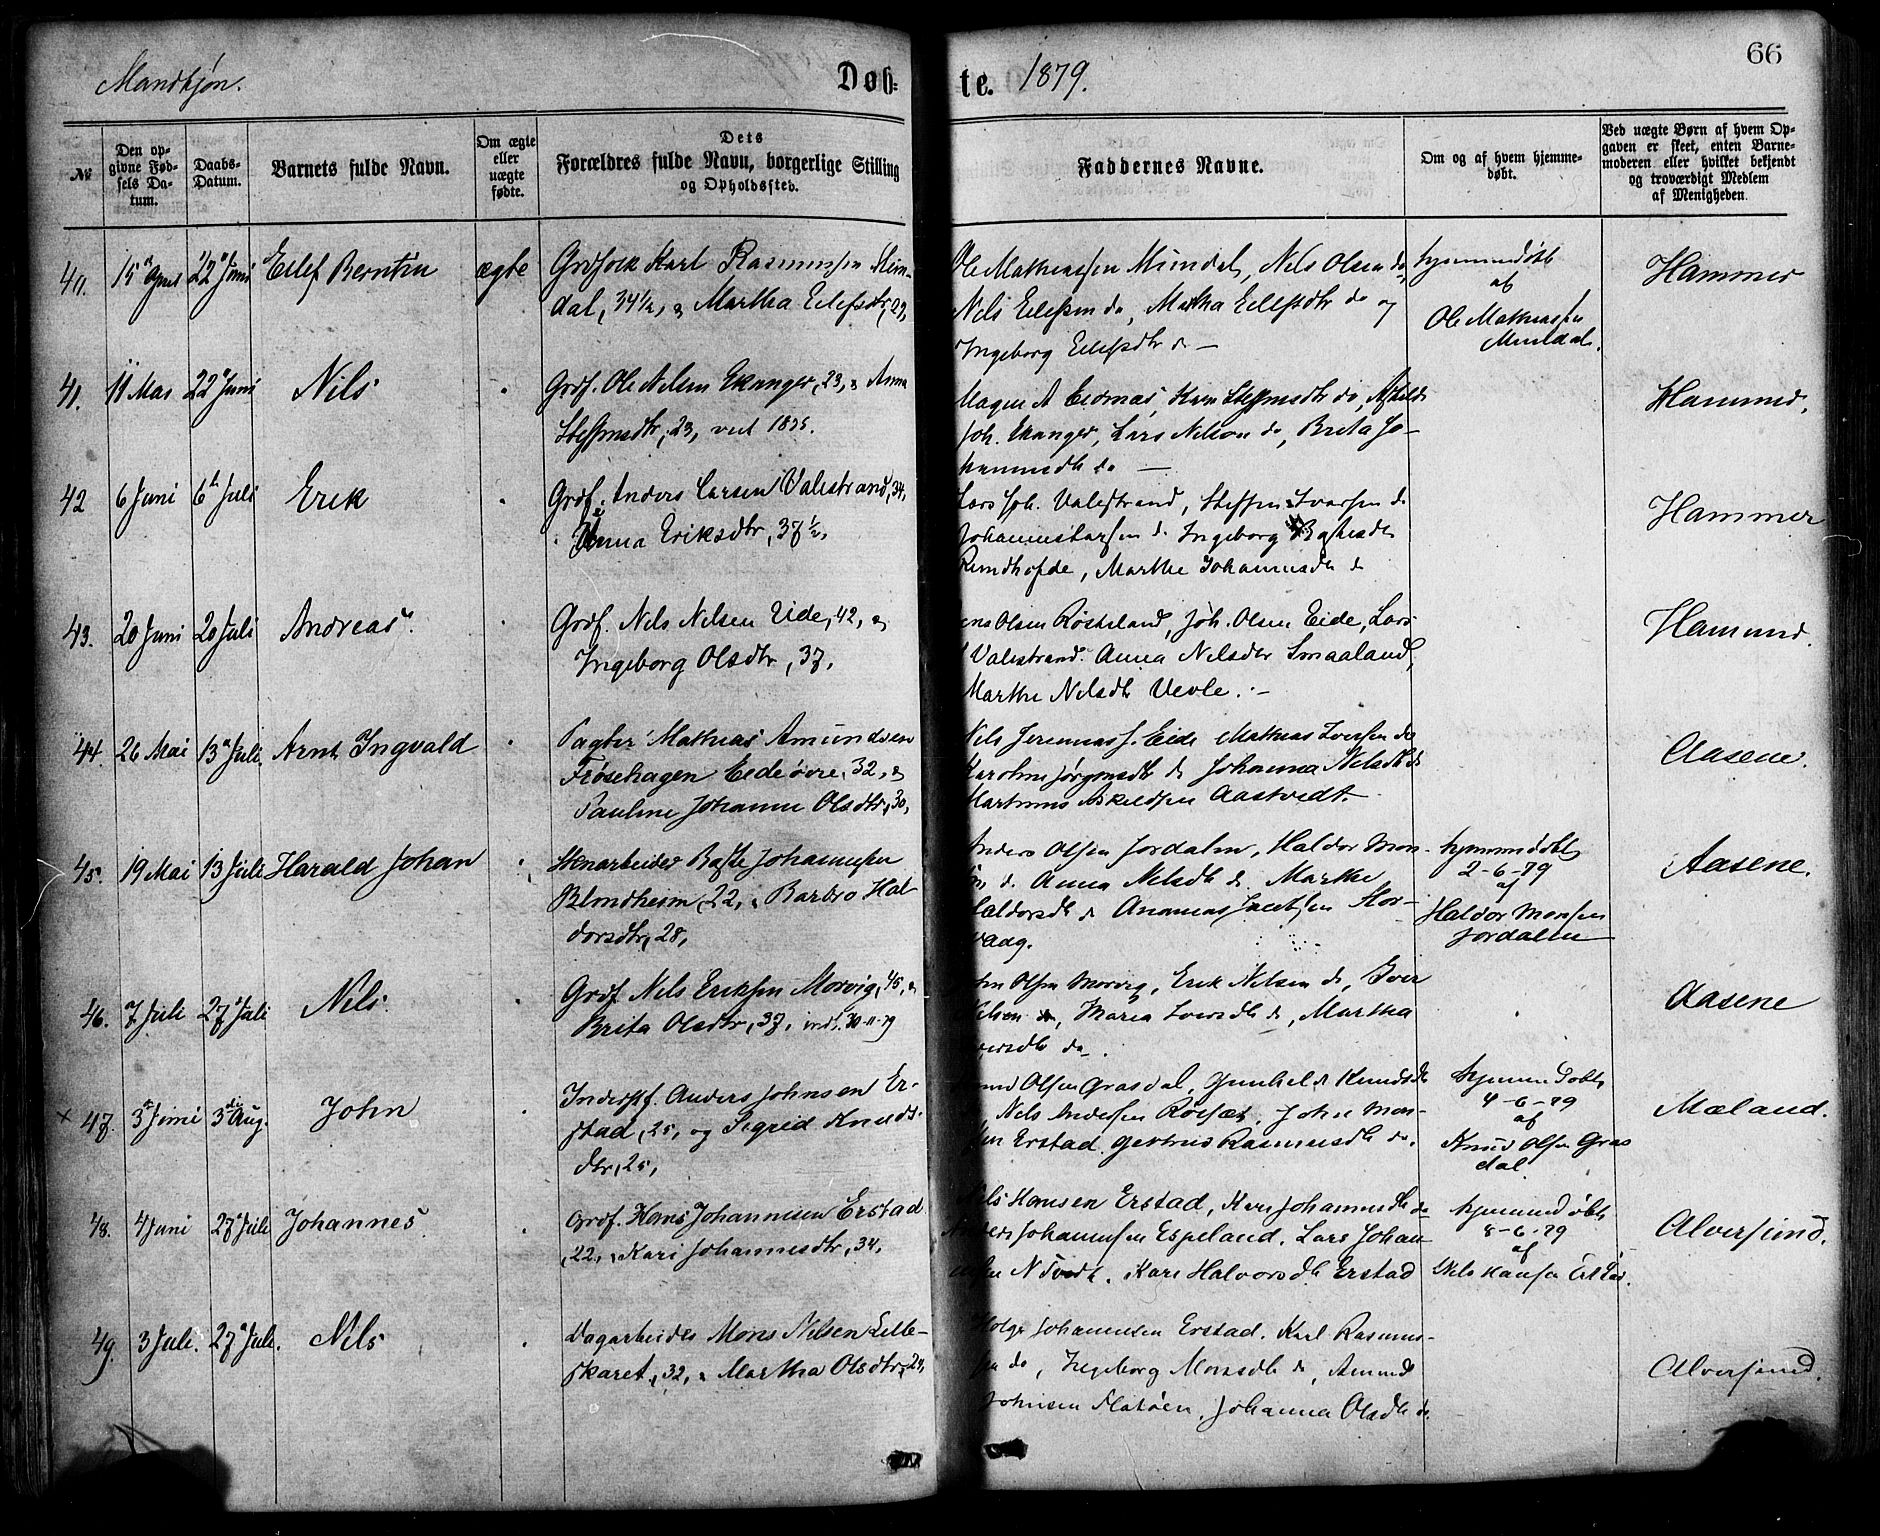 66
Mandkjøn.
Døb-
te. 1879.
№
Den op-
givne Fød-
sels Da-
tum.
Daabs-
Datum.
Barnets fulde Navn.
Om ægte
eller
uægte
fødte.
Dets
Forældres fulde Navn, borgerlige Stilling
og Opholdssted.
Faddernes Navne.
Om og af hvem hjemme-
døbt.
Ved uægte Børn af hvem Op-
gaven er skeet, enten Barne-
moderen eller hvilket bekjendt
og troværdigt Medlem
af Menigheden.
40. 15 April 22 Juni Eilef Berntin ægte
Grdfolk Karl Rasmussen Mun-
dal, 34½, & Martha Eilefsdtr, 27,
Ole Mathiassen Mundal, Nils Olsen do,
Nils Eilefsen do, Martha Eilefsdtr do og
Ingeborg Eilefsdtr do —
hjemmedøbt
af
Ole Mathiassen
Mundal.
Hammer
41. 11 Mai 22 Juni Nils
Grdf. Ole Nilsen Ekanger, 23, & Anna
Steffensdtr, 23,
Magne A Eidsnæs, Kari Steffensdtr do,
Joh. Ekanger, Lars Nilsen do, Brita Jo-
hannesdtr do —
Hammer.
42 6 Juni 6 Juli Erik
Grdf. Anders Larsen Valestrand, 34,
Anna Eriksdtr, 37½,
Lars Joh. Valestrand, Steffen Ivarsen do
Johannes Larsen do Ingeborg
Rundhofde, Marthe Johannesdtr do
Hammer
43. 20 Juni 20 Juli Andreas.
Grdf. Nils Nilsen Eide, 42, &
Ingeborg Olsdtr, 37,
Olsen Røskeland, Joh. Olsen Eide, Lars
Valestrand. Anna Nilsdtr Smaaland,
Marthe Nilsdtr Vevle. —
Hammer.
44. 26 Mai 13 Juli. Arnt Ingvald
Pagter Mathias Amundsen
Frøsehagen Eide øvre, 32, &
Pauline Johanne Olsdtr, 30,
Nils Jeremiass. Eide Mathias Iversen do
Karoline Jørgensdtr do Johanna Nilsdtr do
Martinus Askeldsen Aastvedt.
Aasene.
45. 19 Mai 13 Juli Harald Johan
Stenarbeider Johannesen
Blondheim, 22, & Barbro Hal-
dorsdtr, 28,
Anders Olsen Jordalen, Haldor Mon-
sen do. Anna Nilsdtr do, Marthe
Haldorsdtr do Andreas Stor-
vaag.
hjemmedøbt
2-6-79
af
Haldor Monsen
Jordalen
Aasene.
46. 7 Juli 27 Juli Nils.
Grdf. Nils Eriksen Morvig, 45, &
Brita Olsdtr, 37, indt. 30-11-79
Olsen Morvig, Erik Nilsen do, Iver
Nilsen do, Maria Iversdtr do, Martha
Iversdtr do.
Aasene
× 47. 3 Juni 3die Aug. John
Inderst. Anders Johnsen Er-
stad, 25, og Sigrid Knuds-
dtr, 25,
Knud Olsen Grasdal, Gunhild Knudsdtr
Nils Andersen Røssæt, John Mon-
sen Erstad. Gertrud Rasmusdtr do.
hjemmedøbt
4-6-79
af
Knud Olsen Gras
dal
Mæland.
48. 4 Juni 27 Juli Johannes.
Grdf. Hans Johannesen Erstad
22, & Kari Johannesdtr, 34,
Nils Hansen Erstad, Kari Johannesdtr do
Anders Johannesen Espeland, Lars Johan-
nesen N Tvedt. Kari Halvorsdtr Erstad
hjemmedøbt
8-6-79
af
Nils Hansen Erstad.
Alversund.
49. 3 Juli. 27 Juli. Nils
Dagarbeider Mons Nilsen Lille-
skaret, 32, & Martha Olsdtr, 24,
Helge Johannesen Erstad. Karl Rasmus-
sen do, Ingeborg Monsdtr do, Amund
Johnsen Flatøen, Johanna Olsdtr do.
Alversund.